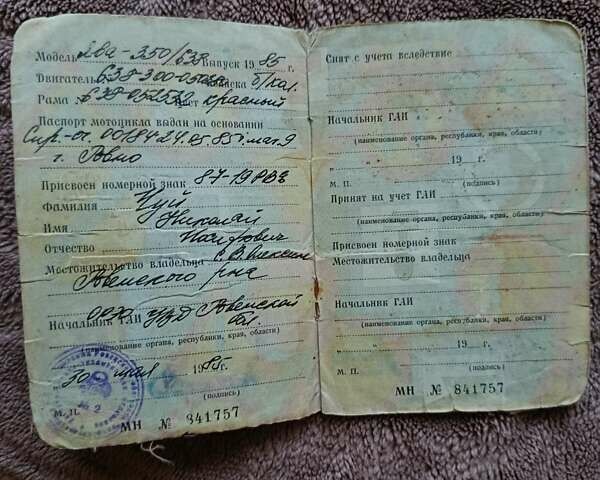 Модель Ява-350/638 выпуск 1985 г.
Двигатель 638-300-05 б/кол.
Рама 638-052532 цвет красный
Паспорт мотоцикла выдан на основании
Спр.-сч. 00184 24.05.85г. маг. 9
г. Ровно
Присвоен номерной знак 87-19 РВЗ
Фамилия
Имя Николай
Отчество
Местожительство владельца с.
Ровенского р-на
Начальник ГАИ УВД Ровенской обл.
(наименование органа, республики, края, области)
30 мая 1985 г.
(подпись)
М. П.
МН № 841757
Снят с учета вследствие
Начальник ГАИ
(наименование органа, республики, края, области)
„ “ 19 г.
М. П. (подпись)
Принят на учет ГАИ
(наименование органа, республики, края, области)
Присвоен номерной знак
Местожительство владельца
Начальник ГАИ
(наименование органа, республики, края, области)
„ “ 19 г.
М. П. (подпись)
МН № 841757